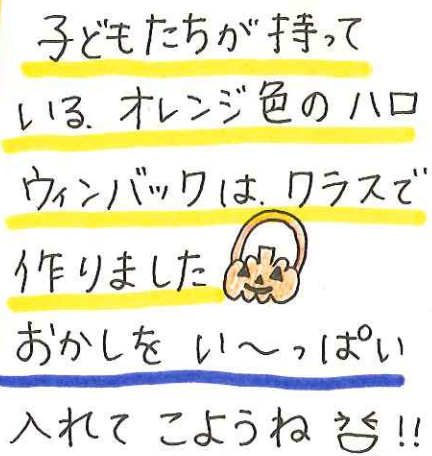 子どもたちが持って
いる、オレンジ色のハロ
ウィンバックは、クラスで
作りました
おかしを い〜っぱい
入れて こようね!!